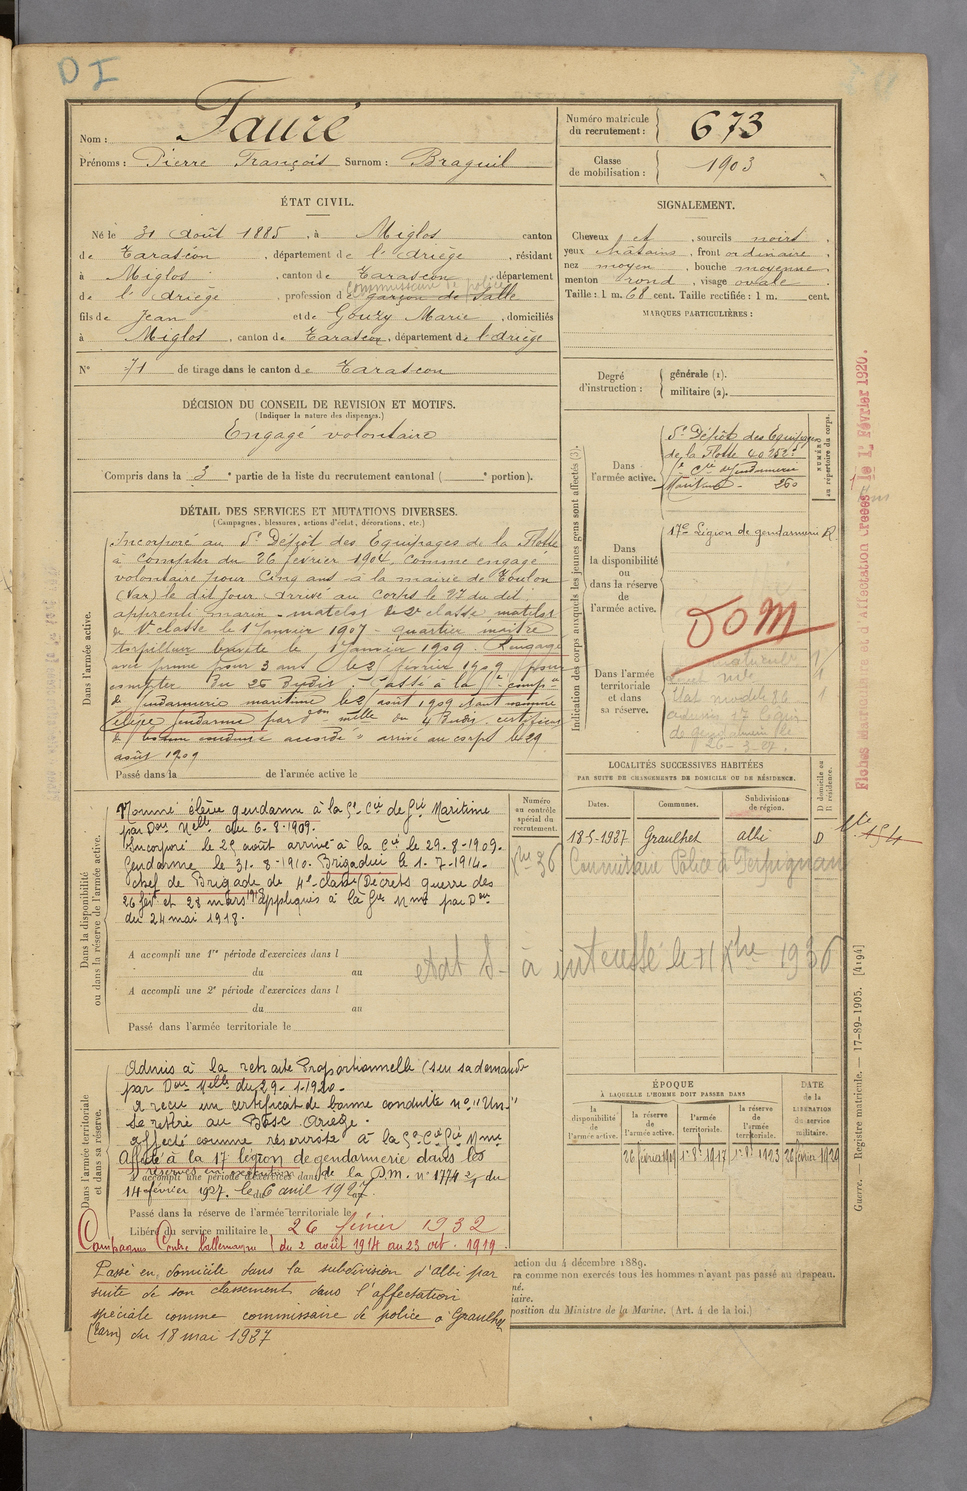 DI
Nom : Fauré
Prénoms : Pierre François Surnom : Braguil
Numéro matricule du recrutement : 673
Classe de mobilisation : 1903
ÉTAT CIVIL.
Né le 31 août 1885, à Miglos canton
de Tarascon, département de l'Ariège, résidant
à Miglos, canton de Tarascon département
commissaire de police
de l'Ariège, profession de garçon de salle
fils de Jean et de Gouzy Marie, domiciliés
à Miglos, canton de Tarascon, département de l'Ariège
N° 71 de tirage dans le canton de Tarascon
DÉCISION DU CONSEIL DE REVISION ET MOTIFS.
(Indiquer la nature des dispenses.)
Engagé volontaire
Compris dans la 3e partie de la liste du recrutement cantonal ( e portion).
SIGNALEMENT.
Cheveux et, sourcils noirs,
yeux châtains, front ordinaire,
nez moyen, bouche moyenne,
menton rond, visage ovale.
Taille : 1 m. 68 cent. Taille rectifiée : 1 m. cent.
MARQUES PARTICULIÈRES :
Degré d'instruction : générale (1).
militaire (2).
DÉTAIL DES SERVICES ET MUTATIONS DIVERSES.
(Campagnes, blessures, actions d'éclat, décorations, etc.)
Dans l'armée active.
Incorporé au 5e Dépôt des Equipages de la Flotte
à compter du 26 février 1904, comme engagé
volontaire pour cinq ans à la mairie de Toulon
(Var) le dit jour arrivé au corps le 27 du dit
apprenti marin - matelot de 2e classe matelot
de 1e classe le 1 Janvier 1907 - quartier maître
torpilleur breveté le 1 Janvier 1909. Rengagé
avec prime pour 3 ans le 25 février 1909 pour
compter du 26 Dudit. Passé à la 5e compie
de gendarmerie maritime le 29 août 1909 étant nommé
élève gendarme par Don mlle du 6 Dudit. certificat
de bonne conduite accordé arrivé au corps le 29
août 1909
Passé dans la de l'armée active le
Indication des corps auxquels les jeunes gens sont affectés (3).
NUMÉRO au répertoire du corps.
Dans l'armée active.
5e Dépôt des Equipages
de la Flotte 40252
5e Cie de Gendarmerie
Maritime - 260
Dans la disponibilité ou dans la réserve de l'armée active.
17e Légion de gendarmerie R
DOM
Dans l'armée territoriale et dans sa réserve.
matricule
Etat modèle 86
admis 17 légion
de gendarmerie le
26-3-27.
Fiches Matricule et d'Affectation Créées le 1er Février 1920.
LOCALITÉS SUCCESSIVES HABITÉES
PAR SUITE DE CHANGEMENTS DE DOMICILE OU DE RÉSIDENCE.
Dates. Communes. Subdivisions de région. D domicile ou R résidence.
18-5-1927 Graulhet albi D
Xbre 36 Commissaire Police à Perpignan
Dans la disponibilité ou dans la réserve de l'armée active.
Numéro au contrôle spécial du recrutement.
Nommé élève gendarme à la 5e Cie de Gie Maritime
par Don Melle du 6-8-1909.
Incorporé le 29 août arrivé à la Cie le 29-8-1909.
Gendarme le 31-8-1910. Brigadier le 1-7-1914.
Chef de Brigade de 4e classe (Décrets guerre des
26 fév et 23 mars 1918 appliqués à la Gie Mme par Don
du 24 mai 1918.
A accompli une 1re période d'exercices dans l
du au
état S- à intéressé le 11 Xbre 1936
A accompli une 2e période d'exercices dans l
du au
Passé dans l'armée territoriale le
Dans l'armée territoriale et dans sa réserve.
Admis à la retraite Proportionnelle (sur sa demande
par Don Melle du 29-1-1920.
a reçu un certificat de bonne conduite n° "Un."
Se retire au Bosc Ariège.
affecté comme réserviste à la 5e Cie Gie Mme
Affecté à la 17 légion de gendarmerie dans les
réserves en exécution de la D.M. n° 1774 2/1 du
A accompli une période d'exercices dans l
14 février 1927. le 6 avril 1927
du au
Passé dans la réserve de l'armée territoriale le
Libéré du service militaire le 26 février 1932
Campagnes Contre l'allemagne du 2 août 1914 au 23 oct. 1919.
ÉPOQUE
À LAQUELLE L'HOMME DOIT PASSER DANS
la disponibilité de l'armée active. la réserve de l'armée active. l'armée territoriale. la réserve de l'armée territoriale.
DATE de la LIBÉRATION du service militaire.
Passé en domicile dans la subdivision d'albi par
suite de son classement dans l'affectation
spéciale comme commissaire de police à Graulhet
(Tarn) du 18 mai 1927
uction du 4 décembre 1889.
ra comme non exercés tous les hommes n'ayant pas passé au drapeau.
né.
iaire.
position du Ministre de la Marine. (Art. 4 de la loi.)
Guerre. — Registre matricule. — 17-89-1905. [4194]